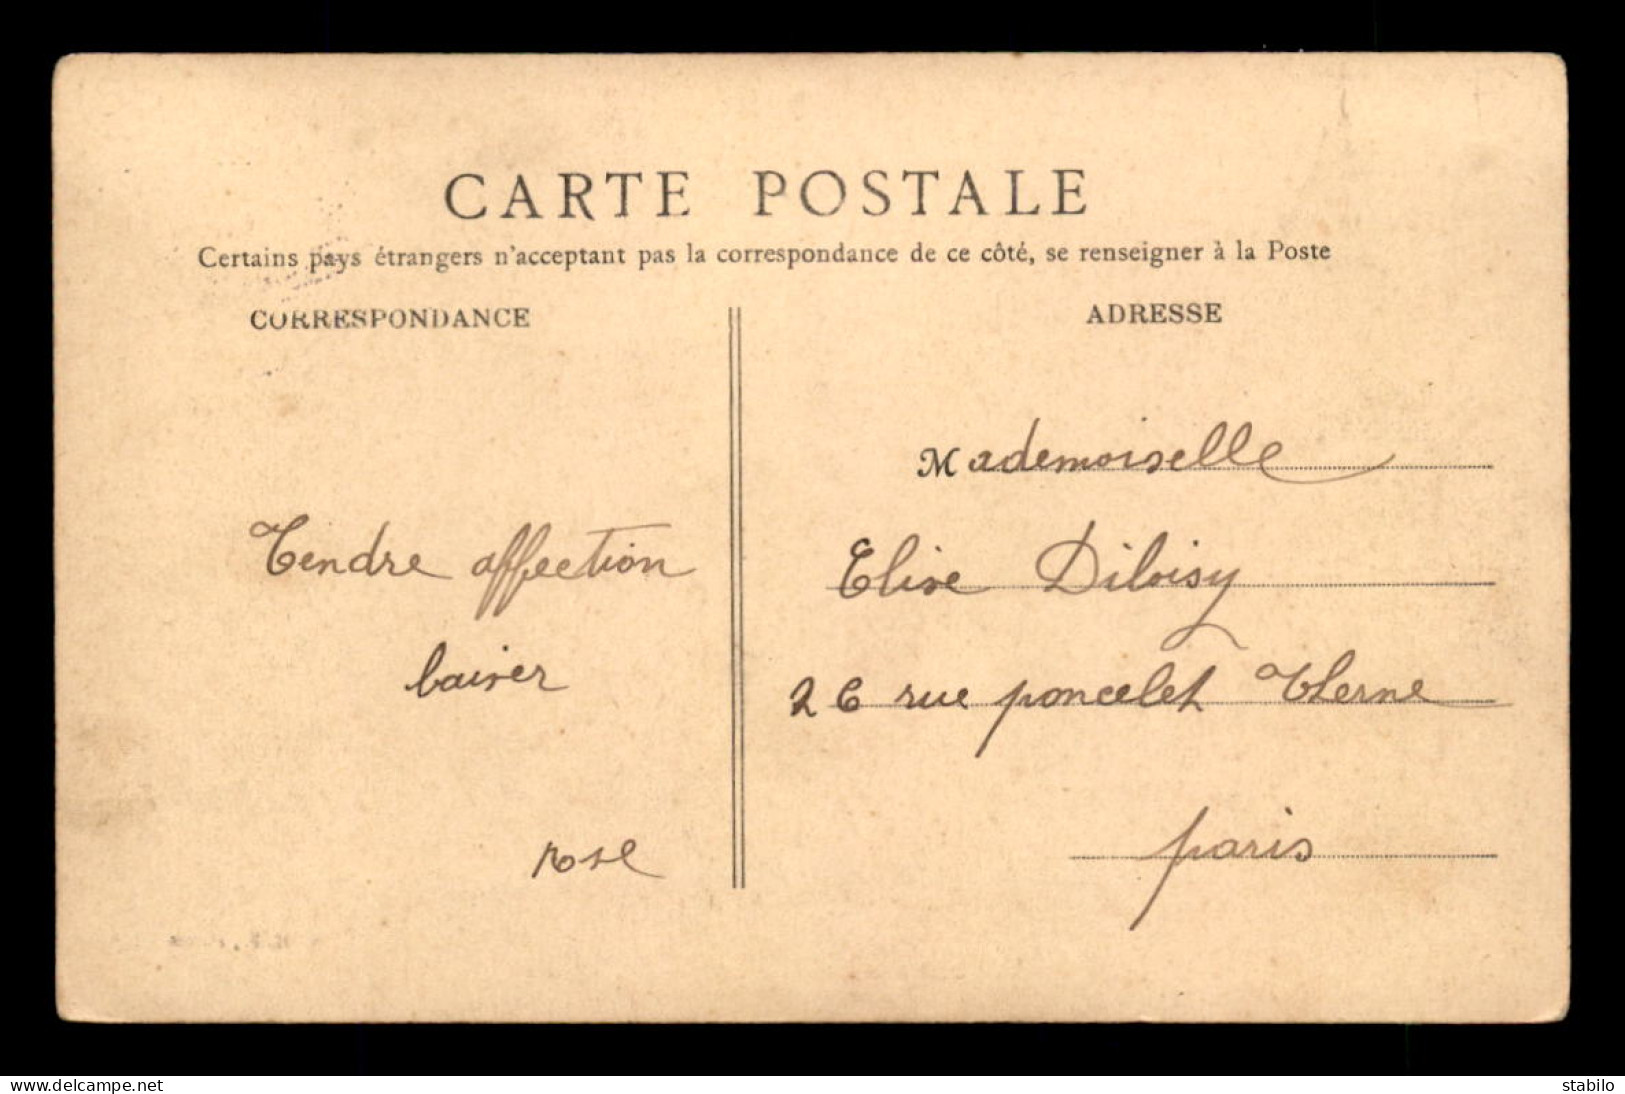 CARTE POSTALE
Certains pays étrangers n'acceptant pas la correspondance de ce côté, se renseigner à la Poste
CORRESPONDANCE
ADRESSE
Tendre affection
baiser
rose
Mademoiselle
Elise Diloisy
26 rue poncelet Therne
paris
www.delcampe.net
stabilo